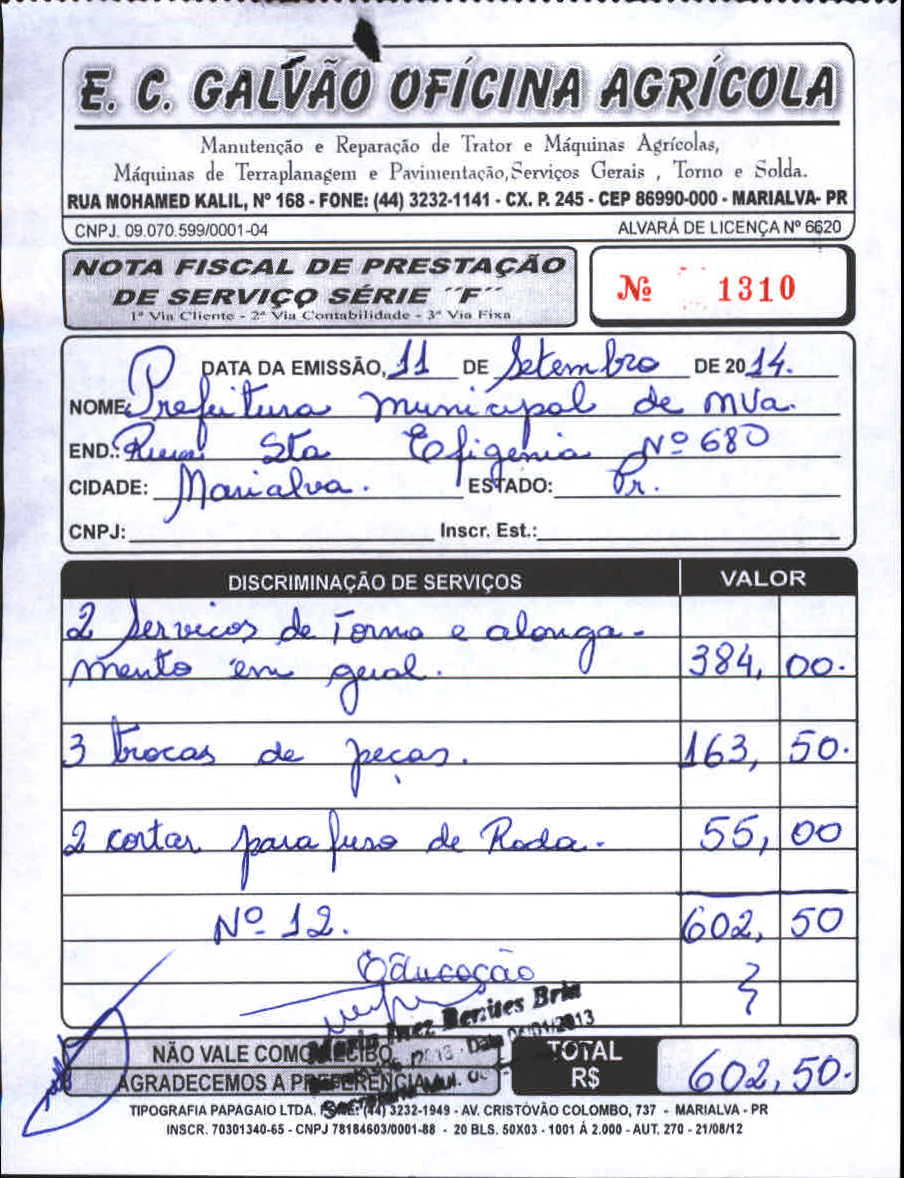 E. C. GALVÃO OFÍCINA AGRÍCOLA
Manutenção e Reparação de Trator e Máquinas Agrícolas,
Máquinas de Terraplanagem e Pavimentação, Serviços Gerais , Torno e Solda.
RUA MOHAMED KALIL, Nº 168 - FONE: (44) 3232-1141 - CX. P. 245 - CEP 86990-000 - MARIALVA- PR
CNPJ. 09.070.599/0001-04 ALVARÁ DE LICENÇA Nº 6620
NOTA FISCAL DE PRESTAÇÃO
DE SERVIÇO SÉRIE "F"
1ª Via Cliente - 2ª Via Contabilidade - 3ª Via Fixa
Nº 1310
DATA DA EMISSÃO, 11 DE Setembro DE 2014.
NOME: Prefeitura municipal de mva.
END.: Rua Sta Efigenia Nº 680
CIDADE: Marialva. ESTADO: Pr.
CNPJ: Inscr. Est.:
DISCRIMINAÇÃO DE SERVIÇOS VALOR
2 servicos de Torno e alonga-
mento em geral. 384,00.
3 trocas de peças. 163,50.
2 cortar parafuso de Roda. 55,00
Nº 12. 602,50
Educação
Maria Inez Benites Bria
Data 04/01/2013
NÃO VALE COMO RECIBO
AGRADECEMOS A PREFERÊNCIA
TOTAL
R$ 602,50.
TIPOGRAFIA PAPAGAIO LTDA. FONE: (44) 3232-1949 - AV. CRISTÓVÃO COLOMBO, 737 - MARIALVA - PR
INSCR. 70301340-65 - CNPJ 78184603/0001-88 - 20 BLS. 50X03 - 1001 Á 2.000 - AUT. 270 - 21/08/12